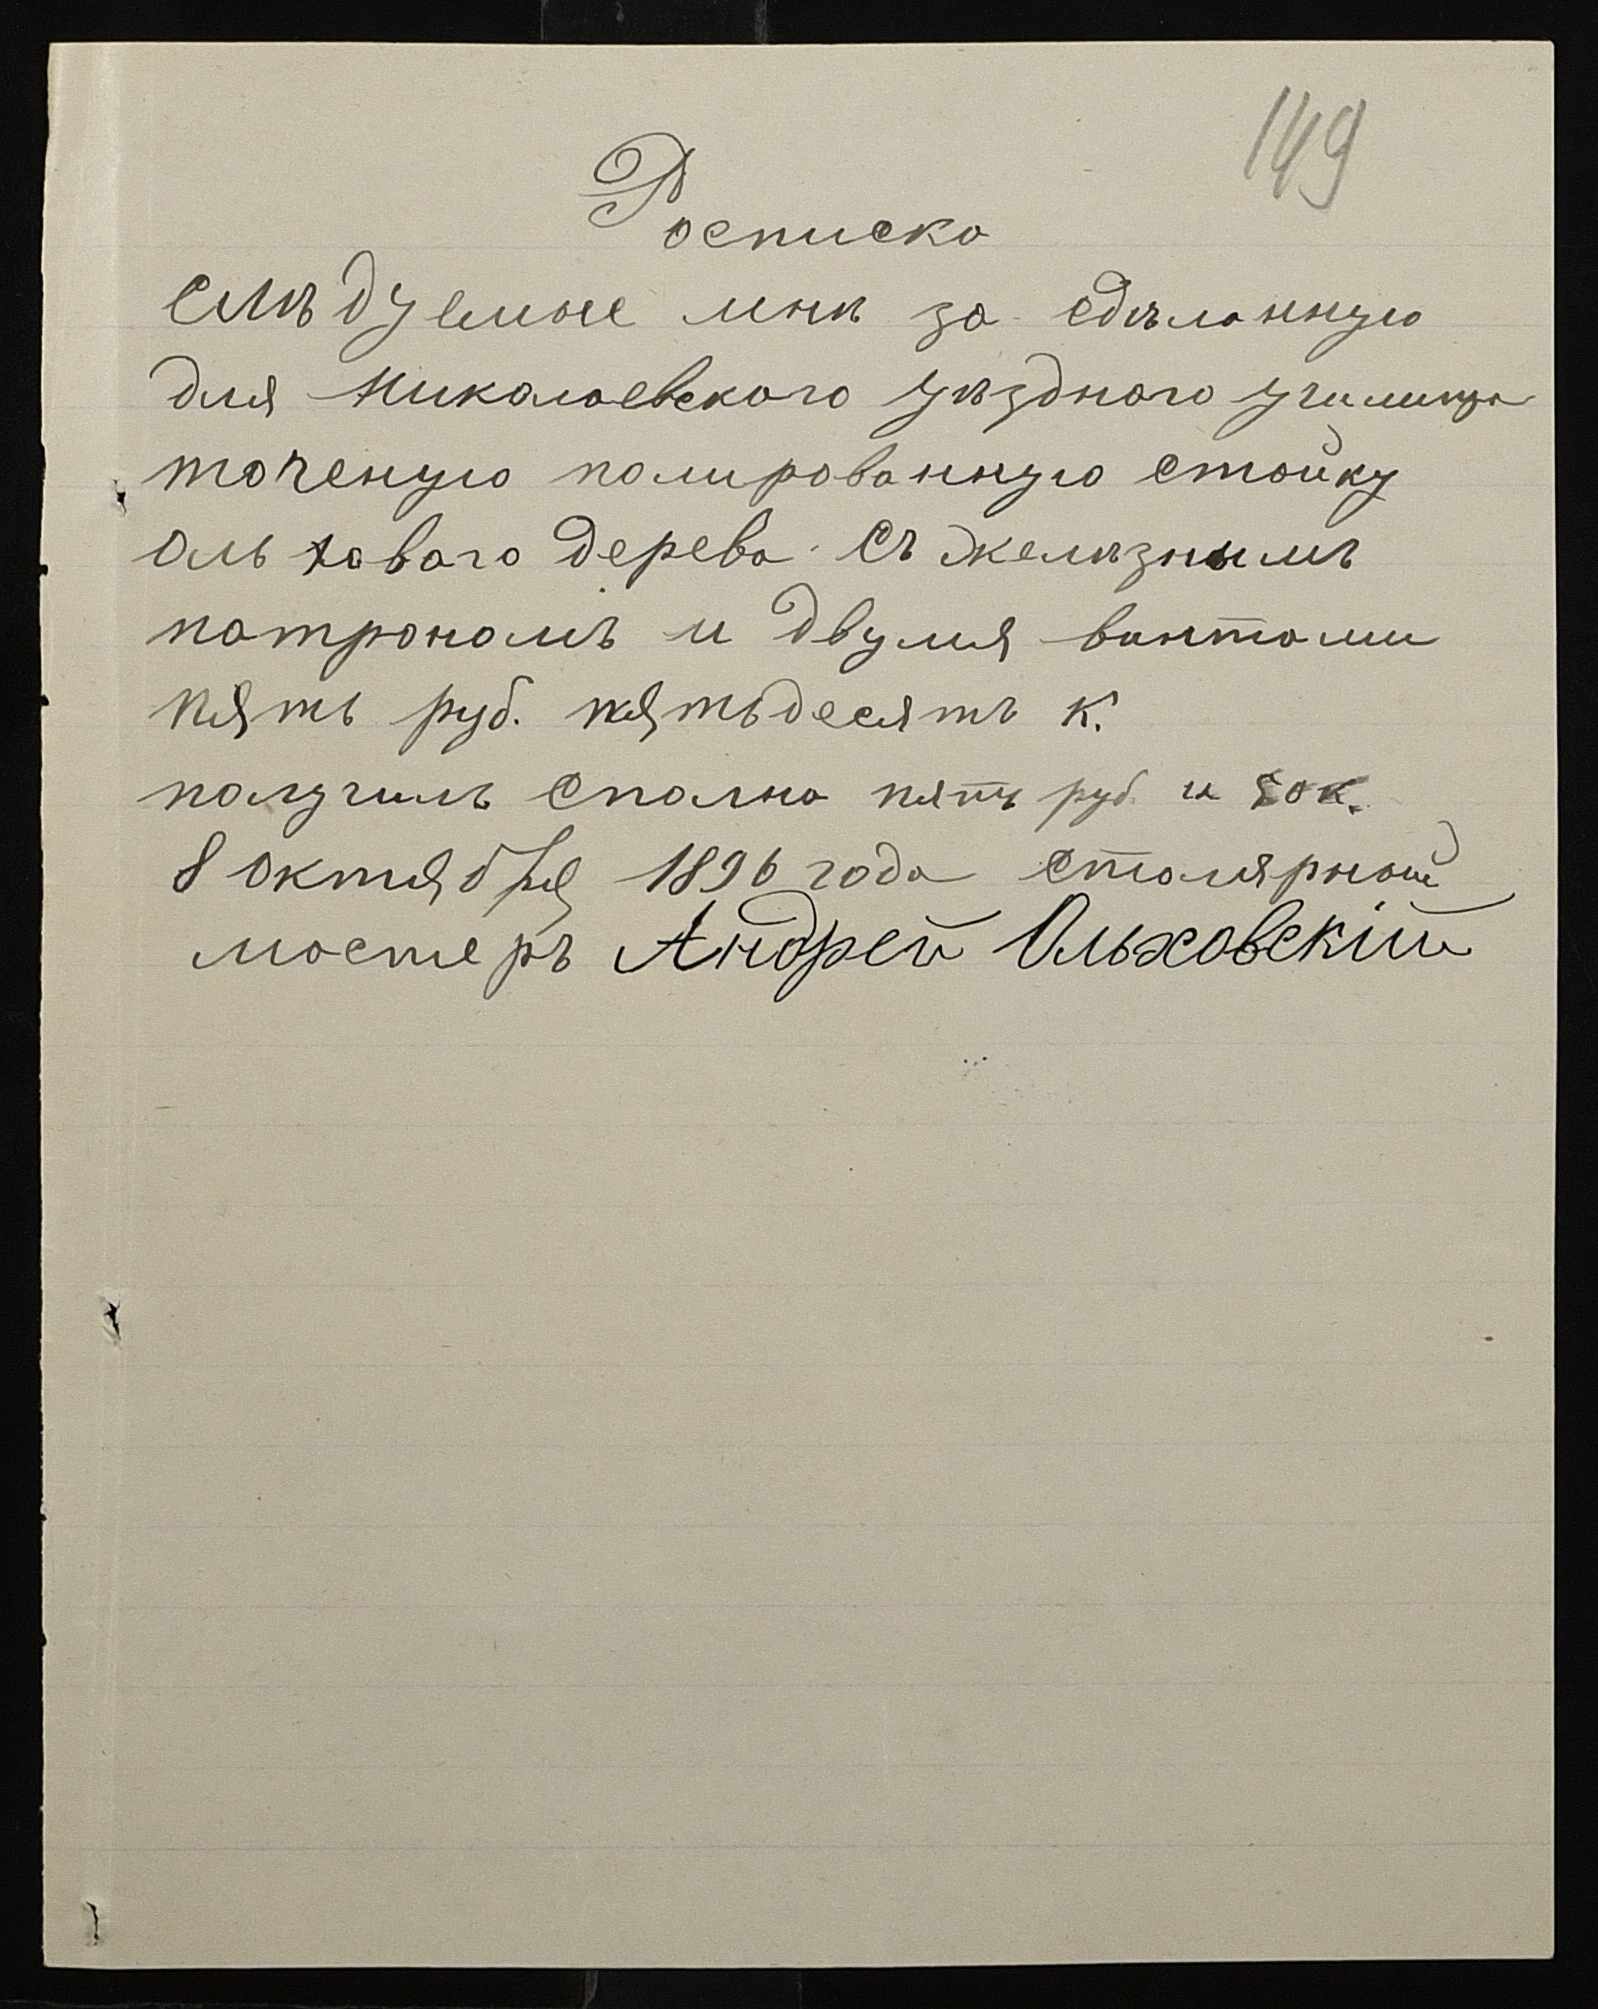 149
Росписка
слѣдуемые мнѣ за сдѣланную
для Николаевскаго уѣзднаго училища
точеную полированную стойку
ольховаго дерева съ желѣзнымъ
патрономъ и двумя винтами
пять руб. пятьдесятъ к.
получилъ сполна пять руб. и 50 к.
8 октября 1896 года столярный
мастеръ Андрей Ольховскій